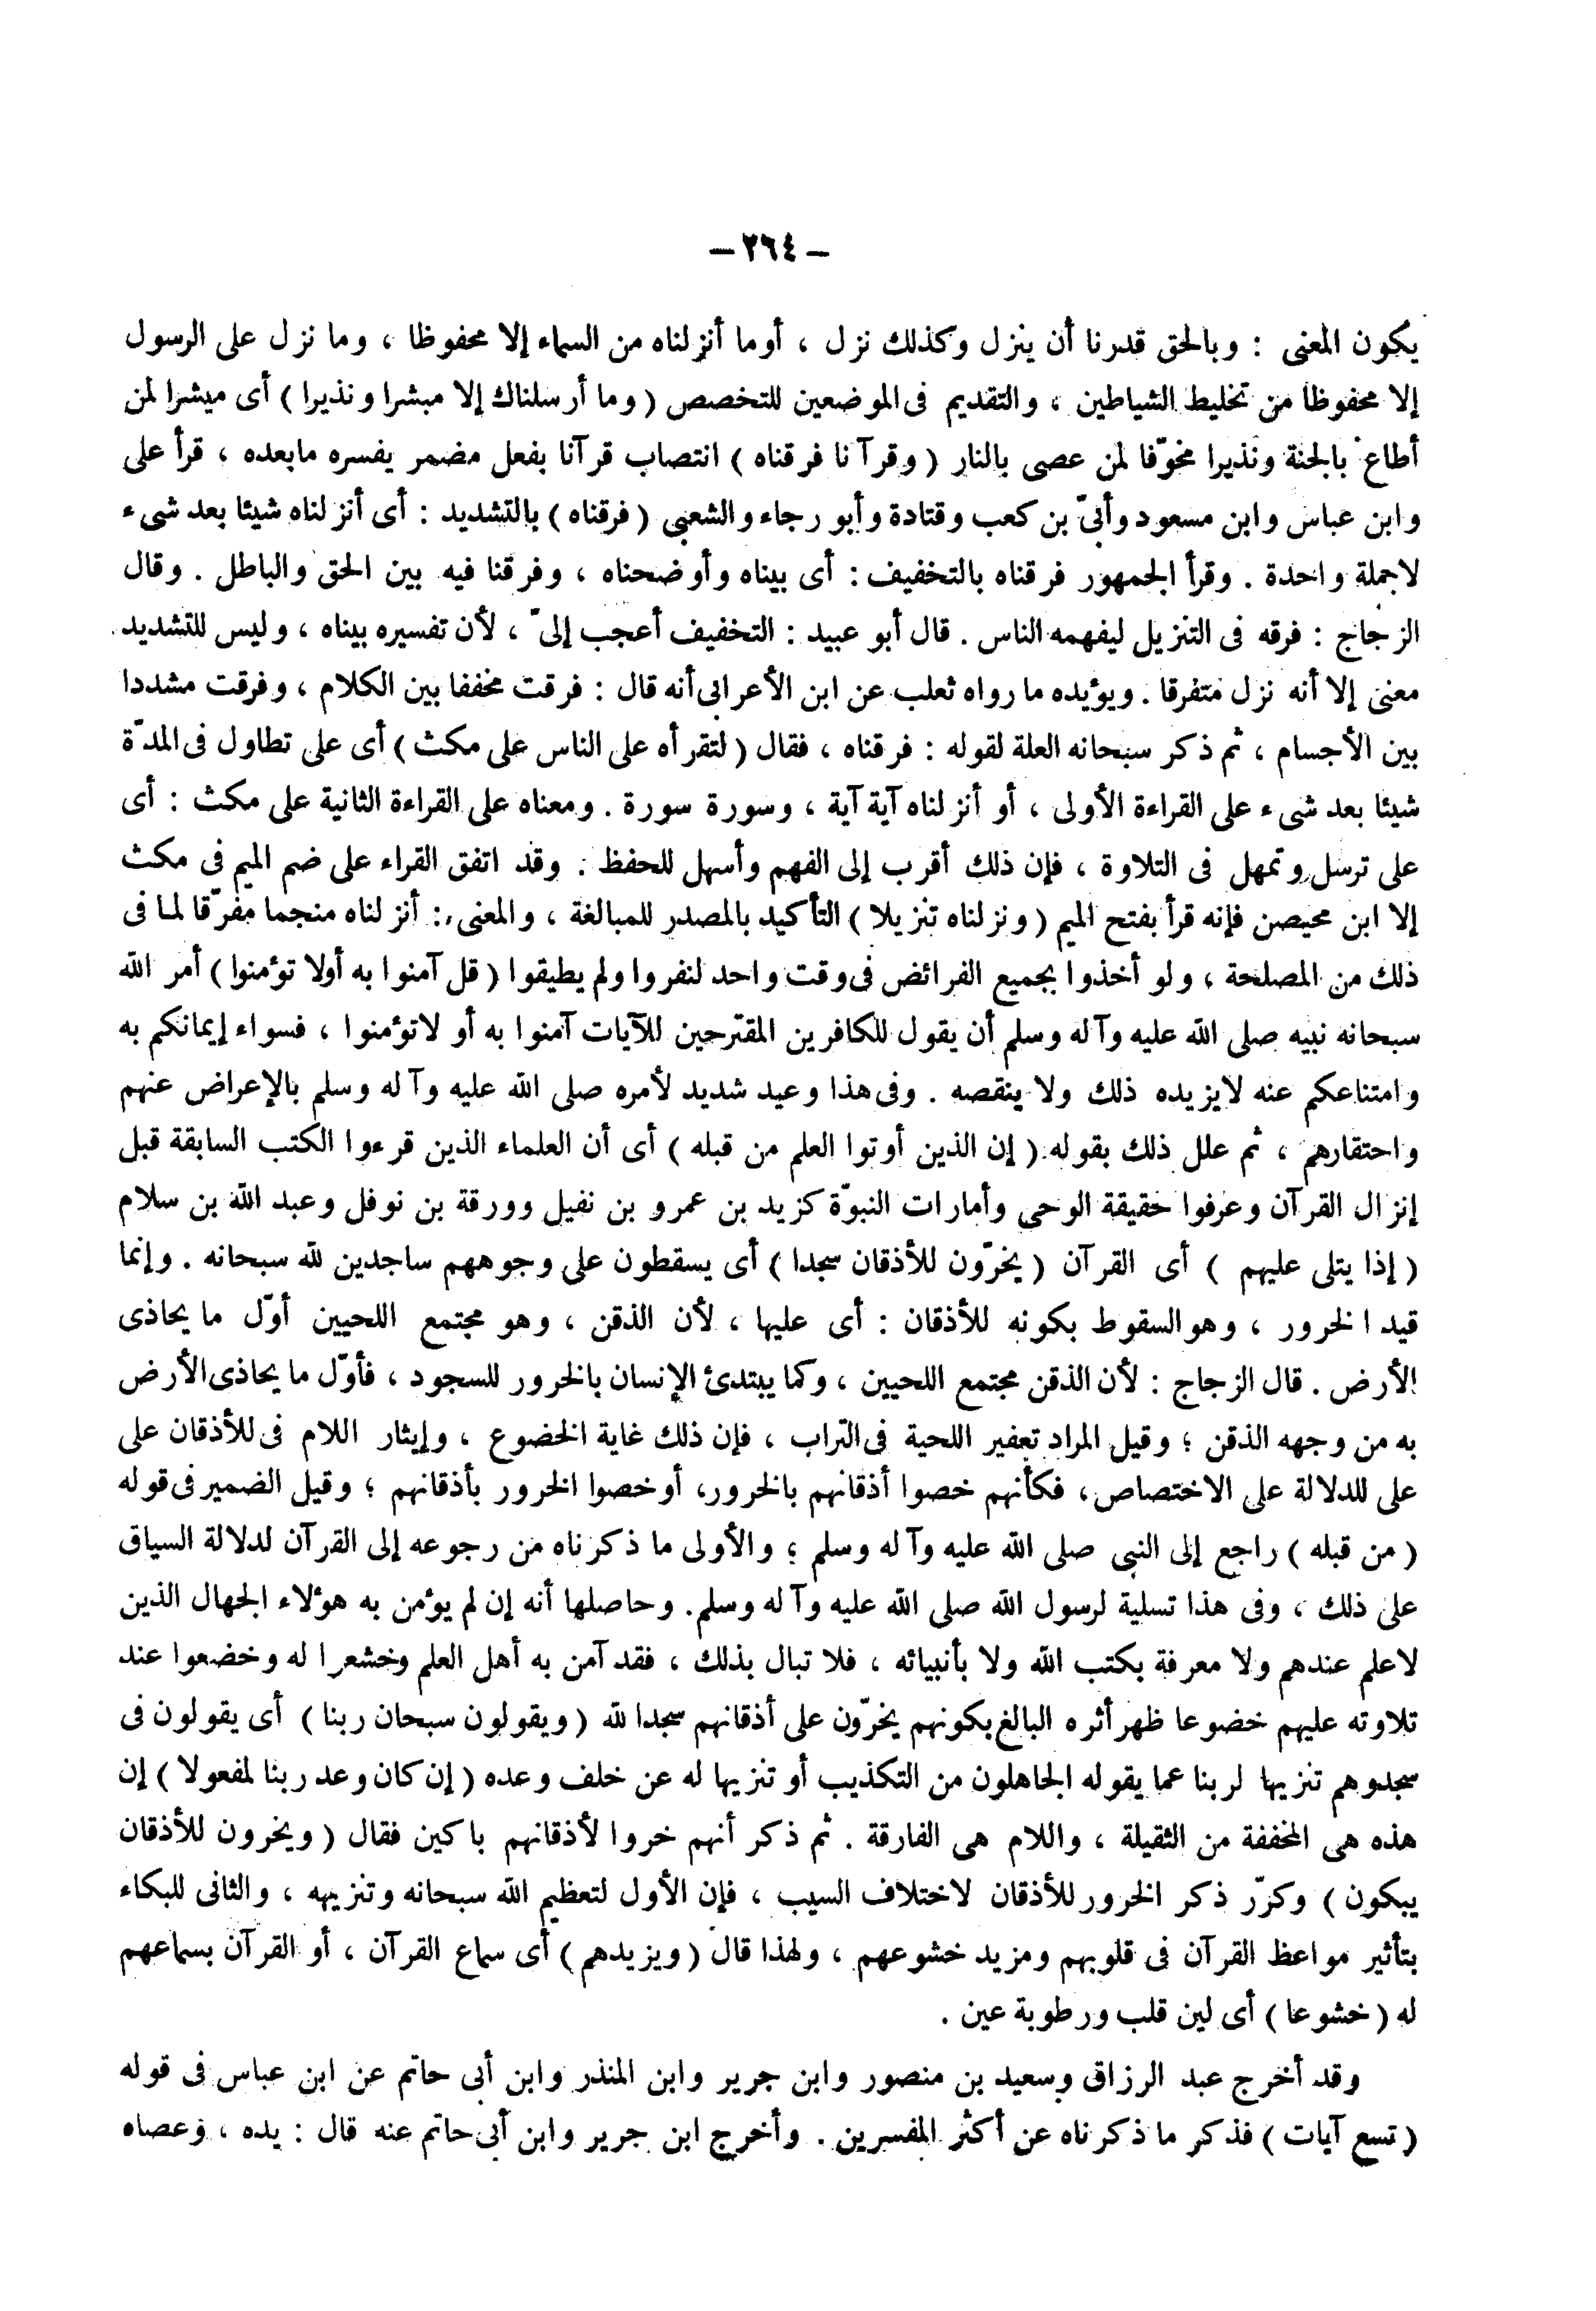 – ٢٦٤ –
يكون المعنى : وبالحق قدرنا أن ينزل وكذلك نزل ، أوما أنزلناه من السماء إلا محفوظا ، وما نزل على الرسول
إلا محفوظا من تخليط الشياطين ، والتقديم فى الموضعين للتخصص ( وما أرسلناك إلا مبشرا ونذيرا ) أى مبشرا لمن
أطاع بالجنة ونذيرا مخوّفا لمن عصى بالنار ( وقرآنا فرقناه ) انتصاب قرآنا بفعل مضمر يفسره مابعده ، قرأ على
وابن عباس وابن مسعود وأبىّ بن كعب وقتادة وأبو رجاء والشعبى ( فرقناه ) بالتشديد : أى أنزلناه شيئا بعد شىء
لاجملة واحدة . وقرأ الجمهور فرقناه بالتخفيف : أى بيناه وأوضحناه ، وفرقنا فيه بين الحق والباطل . وقال
الزجاج : فرقه فى التنزيل ليفهمه الناس . قال أبو عبيد : التخفيف أعجب إلىّ ، لأن تفسيره بيناه ، وليس للتشديد
معنى إلا أنه نزل متفرقا . ويؤيده ما رواه ثعلب عن ابن الأعرابى أنه قال : فرقت مخففا بين الكلام ، وفرقت مشددا
بين الأجسام ، ثم ذكر سبحانه العلة لقوله : فرقناه ، فقال ( لتقرأه على الناس على مكث ) أى على تطاول فى المدّة
شيئا بعد شىء على القراءة الأولى ، أو أنزلناه آية آية ، وسورة سورة . ومعناه على القراءة الثانية على مكث : أى
على ترسل وتمهل فى التلاوة ، فإن ذلك أقرب إلى الفهم وأسهل للحفظ . وقد اتفق القراء على ضم الميم فى مكث
إلا ابن محيصن فإنه قرأ بفتح الميم ( ونزلناه تنزيلا ) التأكيد بالمصدر للمبالغة ، والمعنى : أنزلناه منجما مفرّقا لما فى
ذلك من المصلحة ، ولو أخذوا بجميع الفرائض فى وقت واحد لنفروا ولم يطيقوا ( قل آمنوا به أولا تؤمنوا ) أمر الله
سبحانه نبيه صلى الله عليه وآله وسلم أن يقول للكافرين المقترحين للآيات آمنوا به أو لاتؤمنوا ، فسواء إيمانكم به
وامتناعكم عنه لايزيده ذلك ولا ينقصه . وفى هذا وعيد شديد لأمره صلى الله عليه وآله وسلم بالإعراض عنهم
واحتقارهم ، ثم علل ذلك بقوله ( إن الذين أوتوا العلم من قبله ) أى أن العلماء الذين قرءوا الكتب السابقة قبل
إنزال القرآن وعرفوا حقيقة الوحى وأمارات النبوّة كزيد بن عمرو بن نفيل وورقة بن نوفل وعبد الله بن سلام
( إذا يتلى عليهم ) أى القرآن ( يخرّون للأذقان سجدا ) أى يسقطون على وجوههم ساجدين لله سبحانه . وإنما
قيد الخرور ، وهو السقوط بكونه للأذقان : أى عليها ، لأن الذقن ، وهو مجتمع اللحيين أوّل ما يحاذى
الأرض . قال الزجاج : لأن الذقن مجتمع اللحيين ، وكما يبتدئ الإنسان بالخرور للسجود ، فأوّل ما يحاذى الأرض
به من وجهه الذقن ؛ وقيل المراد تعفير اللحية فى التراب ، فإن ذلك غاية الخضوع ، وإيثار اللام فى للأذقان على
على للدلالة على الاختصاص، فكأنهم خصوا أذقانهم بالخرور، أوخصوا الخرور بأذقانهم ؛ وقيل الضمير فى قوله
( من قبله ) راجع إلى النبى صلى الله عليه وآله وسلم ؛ والأولى ما ذكرناه من رجوعه إلى القرآن لدلالة السياق
على ذلك ، وفى هذا تسلية لرسول الله صلى الله عليه وآله وسلم. وحاصلها أنه إن لم يؤمن به هؤلاء الجهال الذين
لاعلم عندهم ولا معرفة بكتب الله ولا بأنبيائه ، فلا تبال بذلك ، فقد آمن به أهل العلم وخشعرا له وخضعوا عند
تلاوته عليهم خضوعا ظهر أثره البالغ بكونهم يخرّون على أذقانهم سجدا لله ( ويقولون سبحان ربنا ) أى يقولون فى
سجدوهم تنزيها لربنا عما يقوله الجاهلون من التكذيب أو تنزيها له عن خلف وعده ( إن كان وعد ربنا لمفعولا ) إن
هذه هى المخففة من الثقيلة ، واللام هى الفارقة . ثم ذكر أنهم خروا لأذقانهم باكين فقال ( ويخرون للأذقان
يبكون ) وكرّر ذكر الخرور للأذقان لاختلاف السبب ، فإن الأول لتعظيم الله سبحانه وتنزيهه ، والثانى للبكاء
بتأثير مواعظ القرآن فى قلوبهم ومزيد خشوعهم ، ولهذا قال ( ويزيدهم ) أى سماع القرآن ، أو القرآن بسماعهم
له ( خشوعا ) أى لين قلب ورطوبة عين .
وقد أخرج عبد الرزاق وسعيد بن منصور وابن جرير وابن المنذر وابن أبى حاتم عن ابن عباس فى قوله
( تسع آيات ) فذكر ما ذكرناه عن أكثر المفسرين . وأخرج ابن جرير وابن أبى حاتم عنه قال : يده ، وعصاه